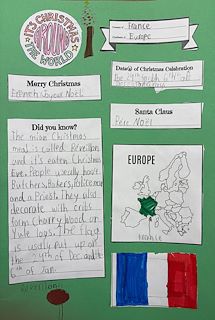 IT'S CHRISTMAS
AROUND
THE WORLD
France
Europe
Date(s) of Christmas Celebration
The 24th
6th of
Merry Christmas
Joyeux Noël
Santa Claus
Père Noël
Did you know?
The main Christmas
meal is called Réveillon
and it's eaten Christmas
Eve. People usually have
Butchers, Bakers, Policeman
and a Priest. They also
decorate with cribs
form Charry wood an
Yule logs. The flags
is usally put up on
the 24th of Dec and the
6th of Jan.
EUROPE
FRANCE